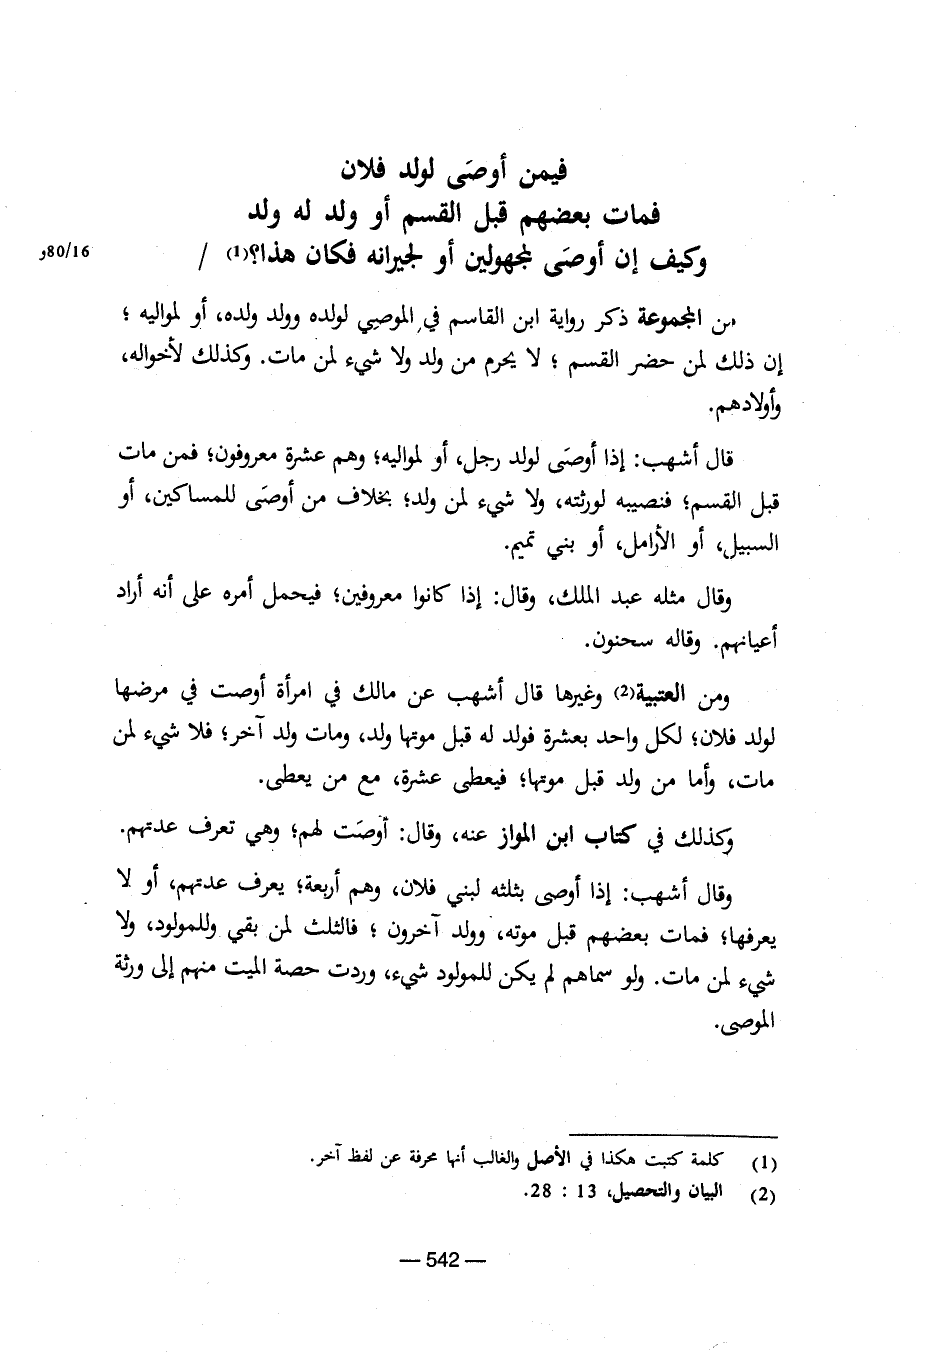 فيمن أوصَى لولد فلان
فمات بعضهم قبل القسم أو ولد له ولد
وكيف إن أوصَى لمجهولين أو لجيرانه فكان هذا؟(1) /
80/16و
من المجموعة ذكر رواية ابن القاسم في الموصي لولده وولد ولده، أو لمواليه ؛
إن ذلك لمن حضر القسم ؛ لا يحرم من ولد ولا شيء لمن مات. وكذلك لأخواله،
وأولادهم.
قال أشهب: إذا أوصَى لولد رجل، أو لمواليه؛ وهم عشرة معروفون؛ فمن مات
قبل القسم؛ فنصيبه لورثته، ولا شيء لمن ولد؛ بخلاف من أوصَى للمساكين، أو
السبيل، أو الأرامل، أو بني تميم.
وقال مثله عبد الملك، وقال: إذا كانوا معروفين؛ فيحمل أمره على أنه أراد
أعيانهم. وقاله سحنون.
ومن العتبية(2) وغيرها قال أشهب عن مالك في امرأة أوصت في مرضها
لولد فلان؛ لكل واحد بعشرة فولد له قبل موتها ولد، ومات ولد آخر؛ فلا شيء لمن
مات، وأما من ولد قبل موتها؛ فيعطى عشرة، مع من يعطى.
وكذلك في كتاب ابن المواز عنه، وقال: أوصَت لهم؛ وهي تعرف عدتهم.
وقال أشهب: إذا أوصى بثلثه لبني فلان، وهم أربعة؛ يعرف عدتهم، أو لا
يعرفها؛ فمات بعضهم قبل موته، وولد آخرون ؛ فالثلث لمن بقي وللمولود، ولا
شيء لمن مات. ولو سماهم لم يكن للمولود شيء، وردت حصة الميت منهم إلى ورثة
الموصى.
(1) كلمة كتبت هكذا في الأصل والغالب أنها محرفة عن لفظ آخر.
(2) البيان والتحصيل، 13 : 28.
— 542 —